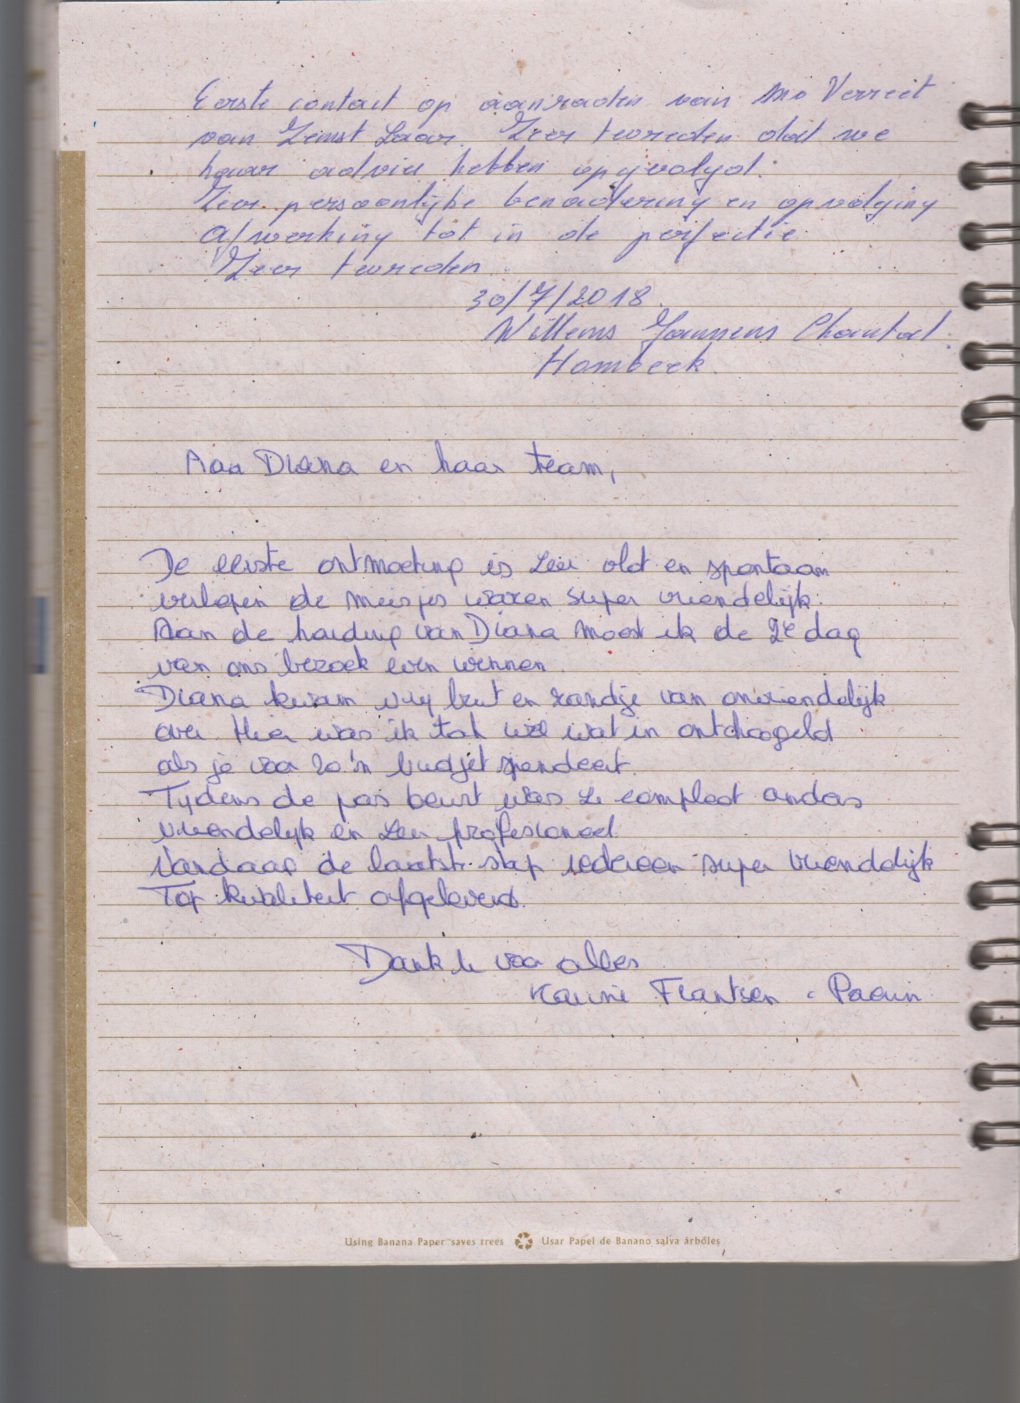 Eerste contact op aanraden van Mv Verreit
van Zemst Laar. Zeer tevreden dat we
haar advies hebben opgevolgd.
Zeer persoonlijke benadering en opvolging
Afwerking tot in de perfectie.
Zeer tevreden.
30/7/2018.
Willems Janssens Chantal.
Hombeek.
Aan Diana en haar team,
De eerste ontmoeting is zeer vlot en spontaan
verlopen de meisjes waren super vriendelijk.
Aan de houding van Diana moest ik de 2e dag
van ons bezoek even wennen.
Diana kwam vrij bruut en randje van onvriendelijk
over. Hier was ik toch wel wat in ontchoogeld
als je voor zo'n budjet spendeert.
Tijdens de pas beurt was ze compleet anders
vriendelijk en zeer profesioneel.
Vandaag de laatste stap iedereen super vriendelijk
Top kwaliteit afgeleverd.
Dank u voor alles
Frantsen
Using Banana Paper saves trees Usar Papel de Banano salva árboles